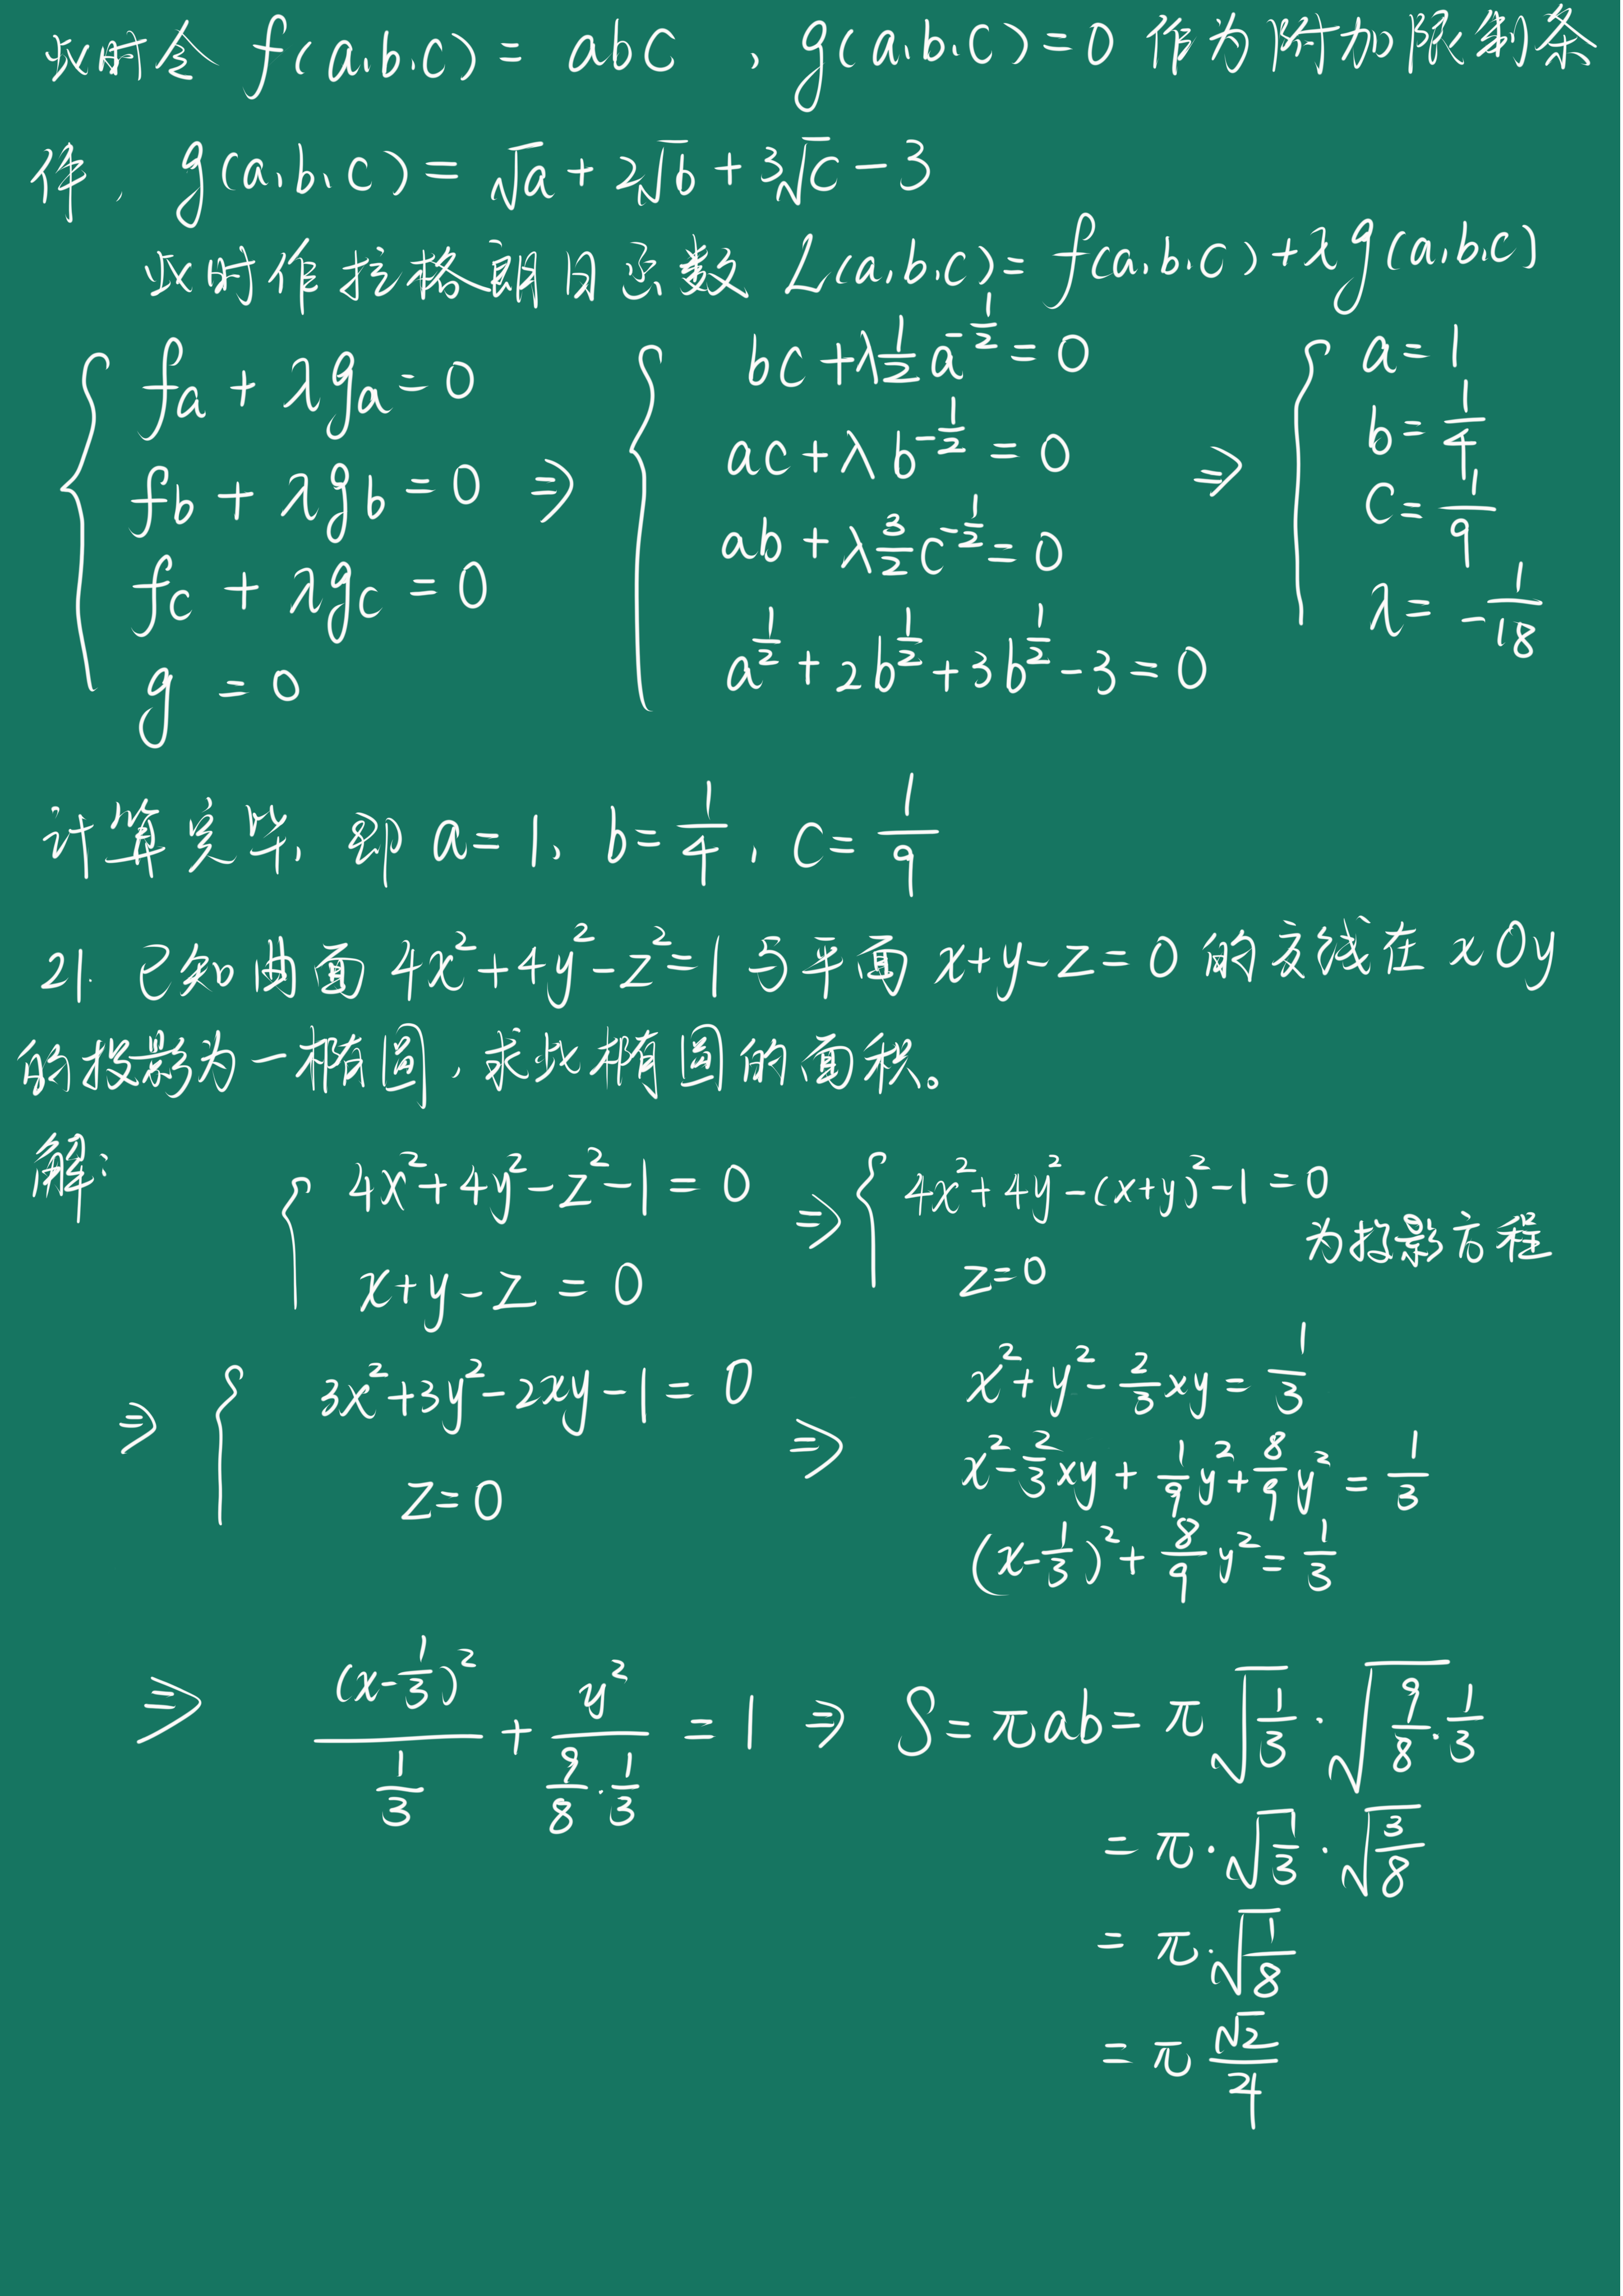 此时令 f(a,b,c) = abc , g(a,b,c)=0 作为附加限制条
件, g(a,b,c) = √a + 2√b + 3√c - 3
此时作拉格朗日函数 L(a,b,c) = f(a,b,c) + λg(a,b,c)
{ fa + λga = 0 ⇒ { bc + λ1/2 a^(-1/2) = 0 ⇒ { a=1
fb + λgb = 0 ac + λb^(-1/2) = 0 b=1/4
fc + λgc = 0 ab + λ3/2 c^(-1/2) = 0 c=1/9
g = 0 a^(1/2) + 2b^(1/2) + 3b^(1/2) - 3 = 0 λ= -1/18
计算完毕, 即 a=1, b=1/4, c=1/9
21. 已知曲面 4x²+4y²-z²=1 与平面 x+y-z=0 的交线在 xOy
的投影为一椭圆,求此椭圆的面积。
解: { 4x²+4y²-z²-1=0 ⇒ { 4x²+4y²-(x+y)²-1=0
x+y-z=0 z=0 为投影方程
⇒ { 3x²+3y²-2xy-1=0 ⇒ x²+y²-2/3xy=1/3
z=0 x²-2/3xy+1/9y²+8/9y²=1/3
(x-1/3)²+8/9y²=1/3
⇒ (x-1/3)²/(1/3) + y²/(9/8·1/3) = 1 ⇒ S=πab=π√(1/3)·√(9/8·1/3)
=π·√(1/3)·√(3/8)
=π·√(1/8)
=π √2/4